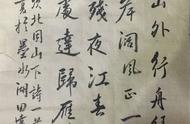 山外行舟绿
岸阔风正一
残夜江春
處達歸雁
次北固山下詩一
於墨水湖